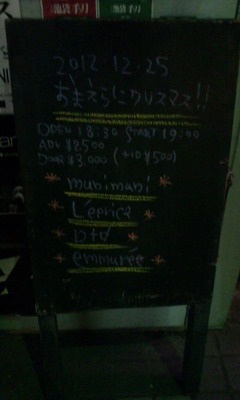 池袋手刀
池袋手刀
2012.12.25
おまえらにクリスマス!!
OPEN 18:30 START 19:00
ADV ¥2500
DOOR ¥3,000 (+1D ¥500)
* munimani *
* Leprica *
* D+d *
* emmurée *